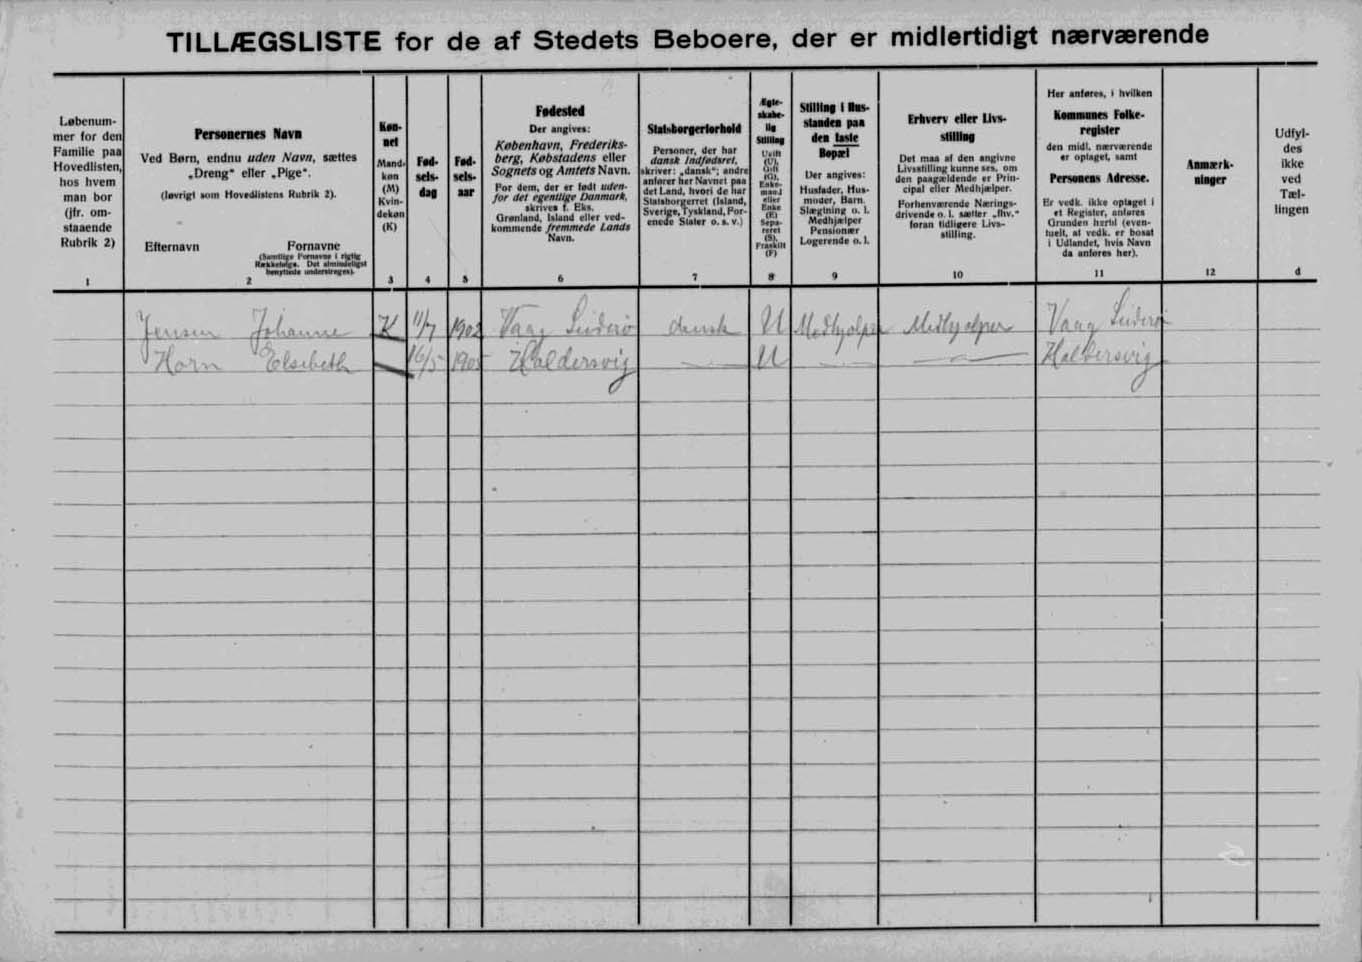 TILLÆGSLISTE for de af Stedets Beboere, der er midlertidigt nærværende
Løbenum-
mer for den
Familie paa
Hovedlisten,
hos hvem
man bor
(jfr. om-
staaende
Rubrik 2)
1
Personernes Navn
Ved Børn, endnu uden Navn, sættes
„Dreng“ eller „Pige“.
(Iøvrigt som Hovedlistens Rubrik 2).
Efternavn Fornavne
(Samtlige Fornavne i rigtig
Rækkefølge. Det almindeligst
benyttede understreges).
2
Køn-
net
Mand-
køn
(M)
Kvin-
dekøn
(K)
3
Fød-
sels-
dag
4
Fød-
sels-
aar
5
Fødested
Der angives:
København, Frederiks-
berg, Købstadens eller
Sognets og Amtets Navn.
For dem, der er født uden-
for det egentlige Danmark,
skrives f. Eks.
Grønland, Island eller ved-
kommende fremmede Lands
Navn.
6
Statsborgerforhold
Personer, der har
dansk Indfødsret,
skriver: „dansk“; andre
anfører her Navnet paa
det Land, hvori de har
Statsborgerret (Island,
Sverige, Tyskland, For-
enede Stater o. s. v.)
7
Ægte-
skabe-
lig
Stilling
Ugift
(U),
Gift
(G),
Enke-
mand
eller
Enke
(E)
Sepa-
reret
(S),
Fraskilt
(F)
8
Stilling i Hus-
standen paa
den faste
Bopæl
Der angives:
Husfader, Hus-
moder, Barn,
Slægtning o. l.
Medhjælper
Pensionær
Logerende o. l.
9
Erhverv eller Livs-
stilling
Det maa af den angivne
Livsstilling kunne ses, om
den paagældende er Prin-
cipal eller Medhjælper.
Forhenværende Nærings-
drivende o. l. sætter „fhv.“
foran tidligere Livs-
stilling.
10
Her anføres, i hvilken
Kommunes Folke-
register
den midl. nærværende
er optaget, samt
Personens Adresse.
Er vedk. ikke optaget i
et Register, anføres
Grunden hertil (even-
tuelt, at vedk. er bosat
i Udlandet, hvis Navn
da anføres her).
11
Anmærk-
ninger
12
Udfyl-
des
ikke
ved
Tæl-
lingen
d
Jensen Johanne K 11/7 1902 Vaag Suderö dansk U Medhjælper Medhjælper Vaag Suderö
Horn Elsebeth — 16/5 1905 Haldersvig — U — — Haldersvig